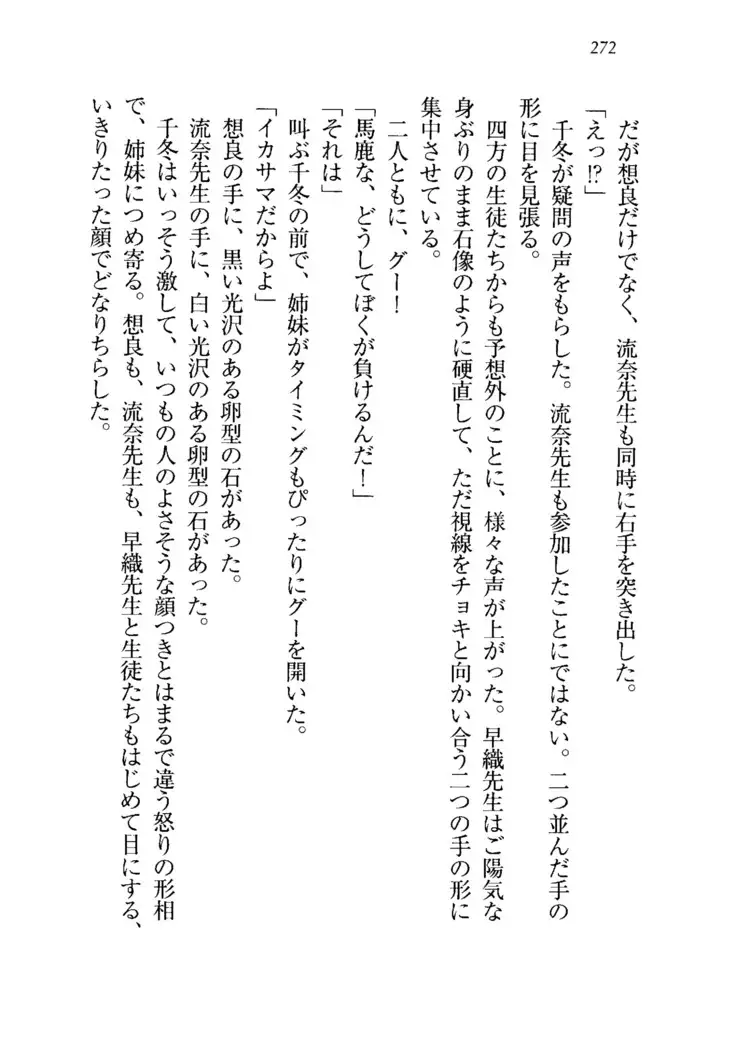 272
だが想良だけでなく、流奈先生も同時に右手を突き出した。
「えっ!?」
千冬が疑問の声をもらした。流奈先生も参加したことにではない。二つ並んだ手の
形に目を見張る。
四方の生徒たちからも予想外のことに、様々な声が上がった。早織先生はご陽気な
身ぶりのまま石像のように硬直して、ただ視線をチョキと向かい合う二つの手の形に
集中させている。
二人ともに、グー！
「馬鹿な、どうしてぼくが負けるんだ！」
「それは」
叫ぶ千冬の前で、姉妹がタイミングもぴったりにグーを開いた。
「イカサマだからよ」
想良の手に、黒い光沢のある卵型の石があった。
流奈先生の手に、白い光沢のある卵型の石があった。
千冬はいっそう激して、いつもの人のよさそうな顔つきとはまるで違う怒りの形相
で、姉妹につめ寄る。想良も、流奈先生も、早織先生と生徒たちもはじめて目にする、
いきりたった顔でどなりちらした。